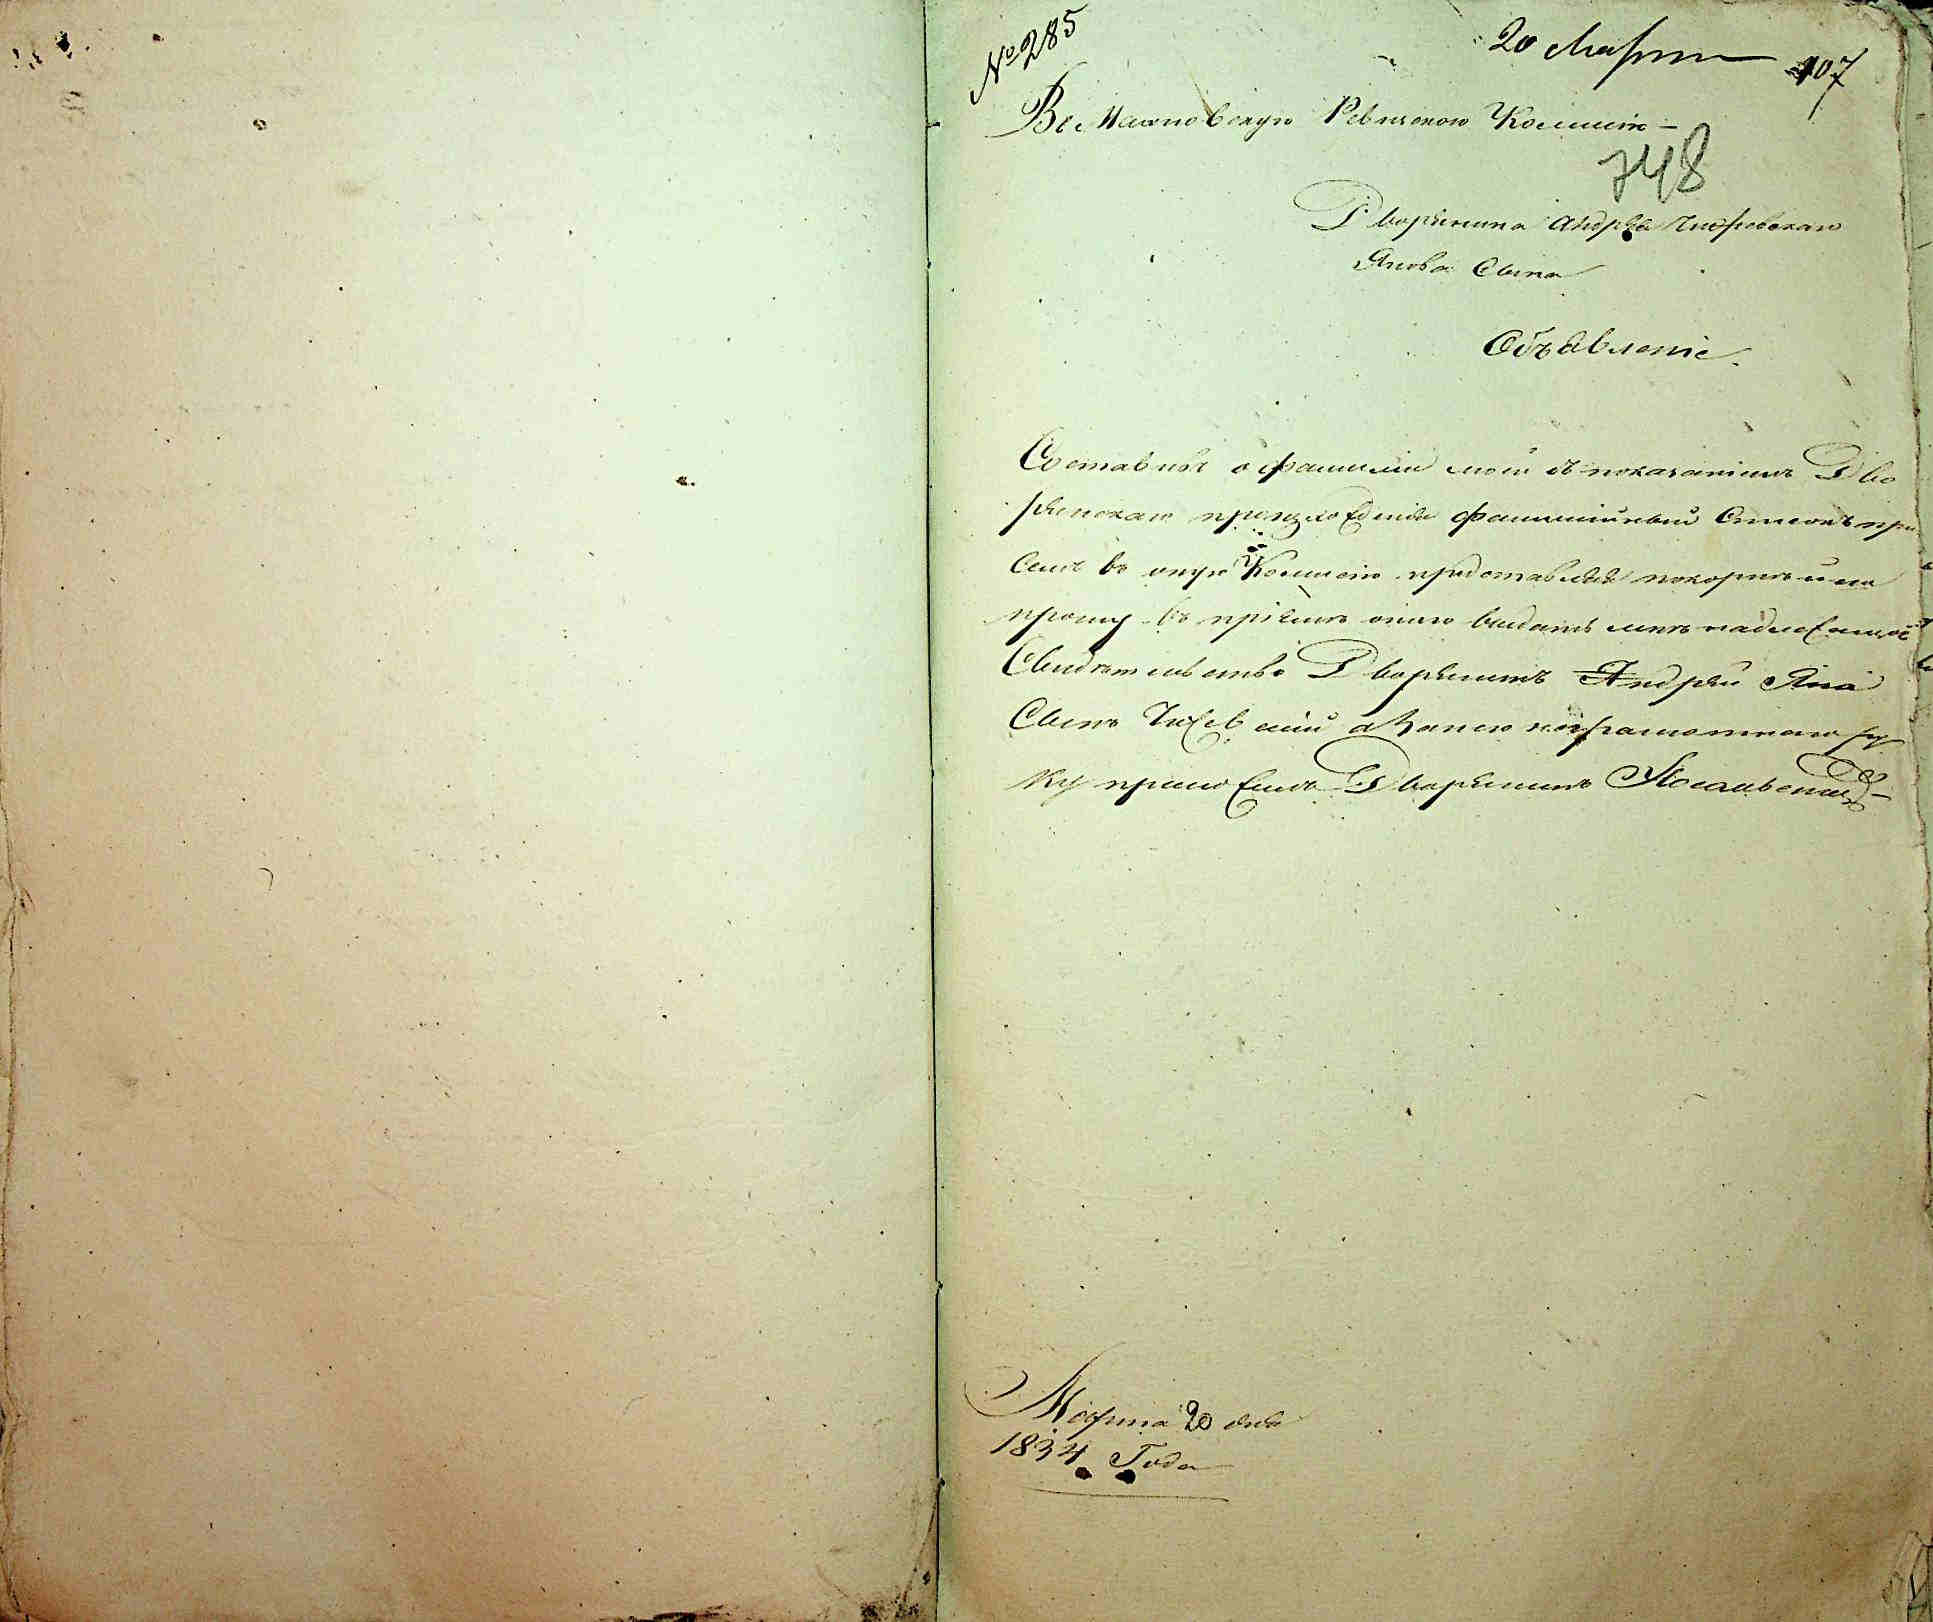 № 285
20 Марта
107
Въ Махновскую Ревизскую Комисію
748
Дворянина Андрея
Янова Сына
Объявленіе
Составивъ о фамиліи моей съ показаніемъ Дво
рянскаго произхожденія фамилійный Списокъ при
семъ въ оную Комисію представляя покорнейше
прошу въ пріемъ онаго выдать мнъ надлежащое
Свидътельство Дворянинъ Андрей Яна
Сынъ а занего неграмотнаго ру
ку приложилъ Дворянинъ
Марта 20 дня
1834 Года